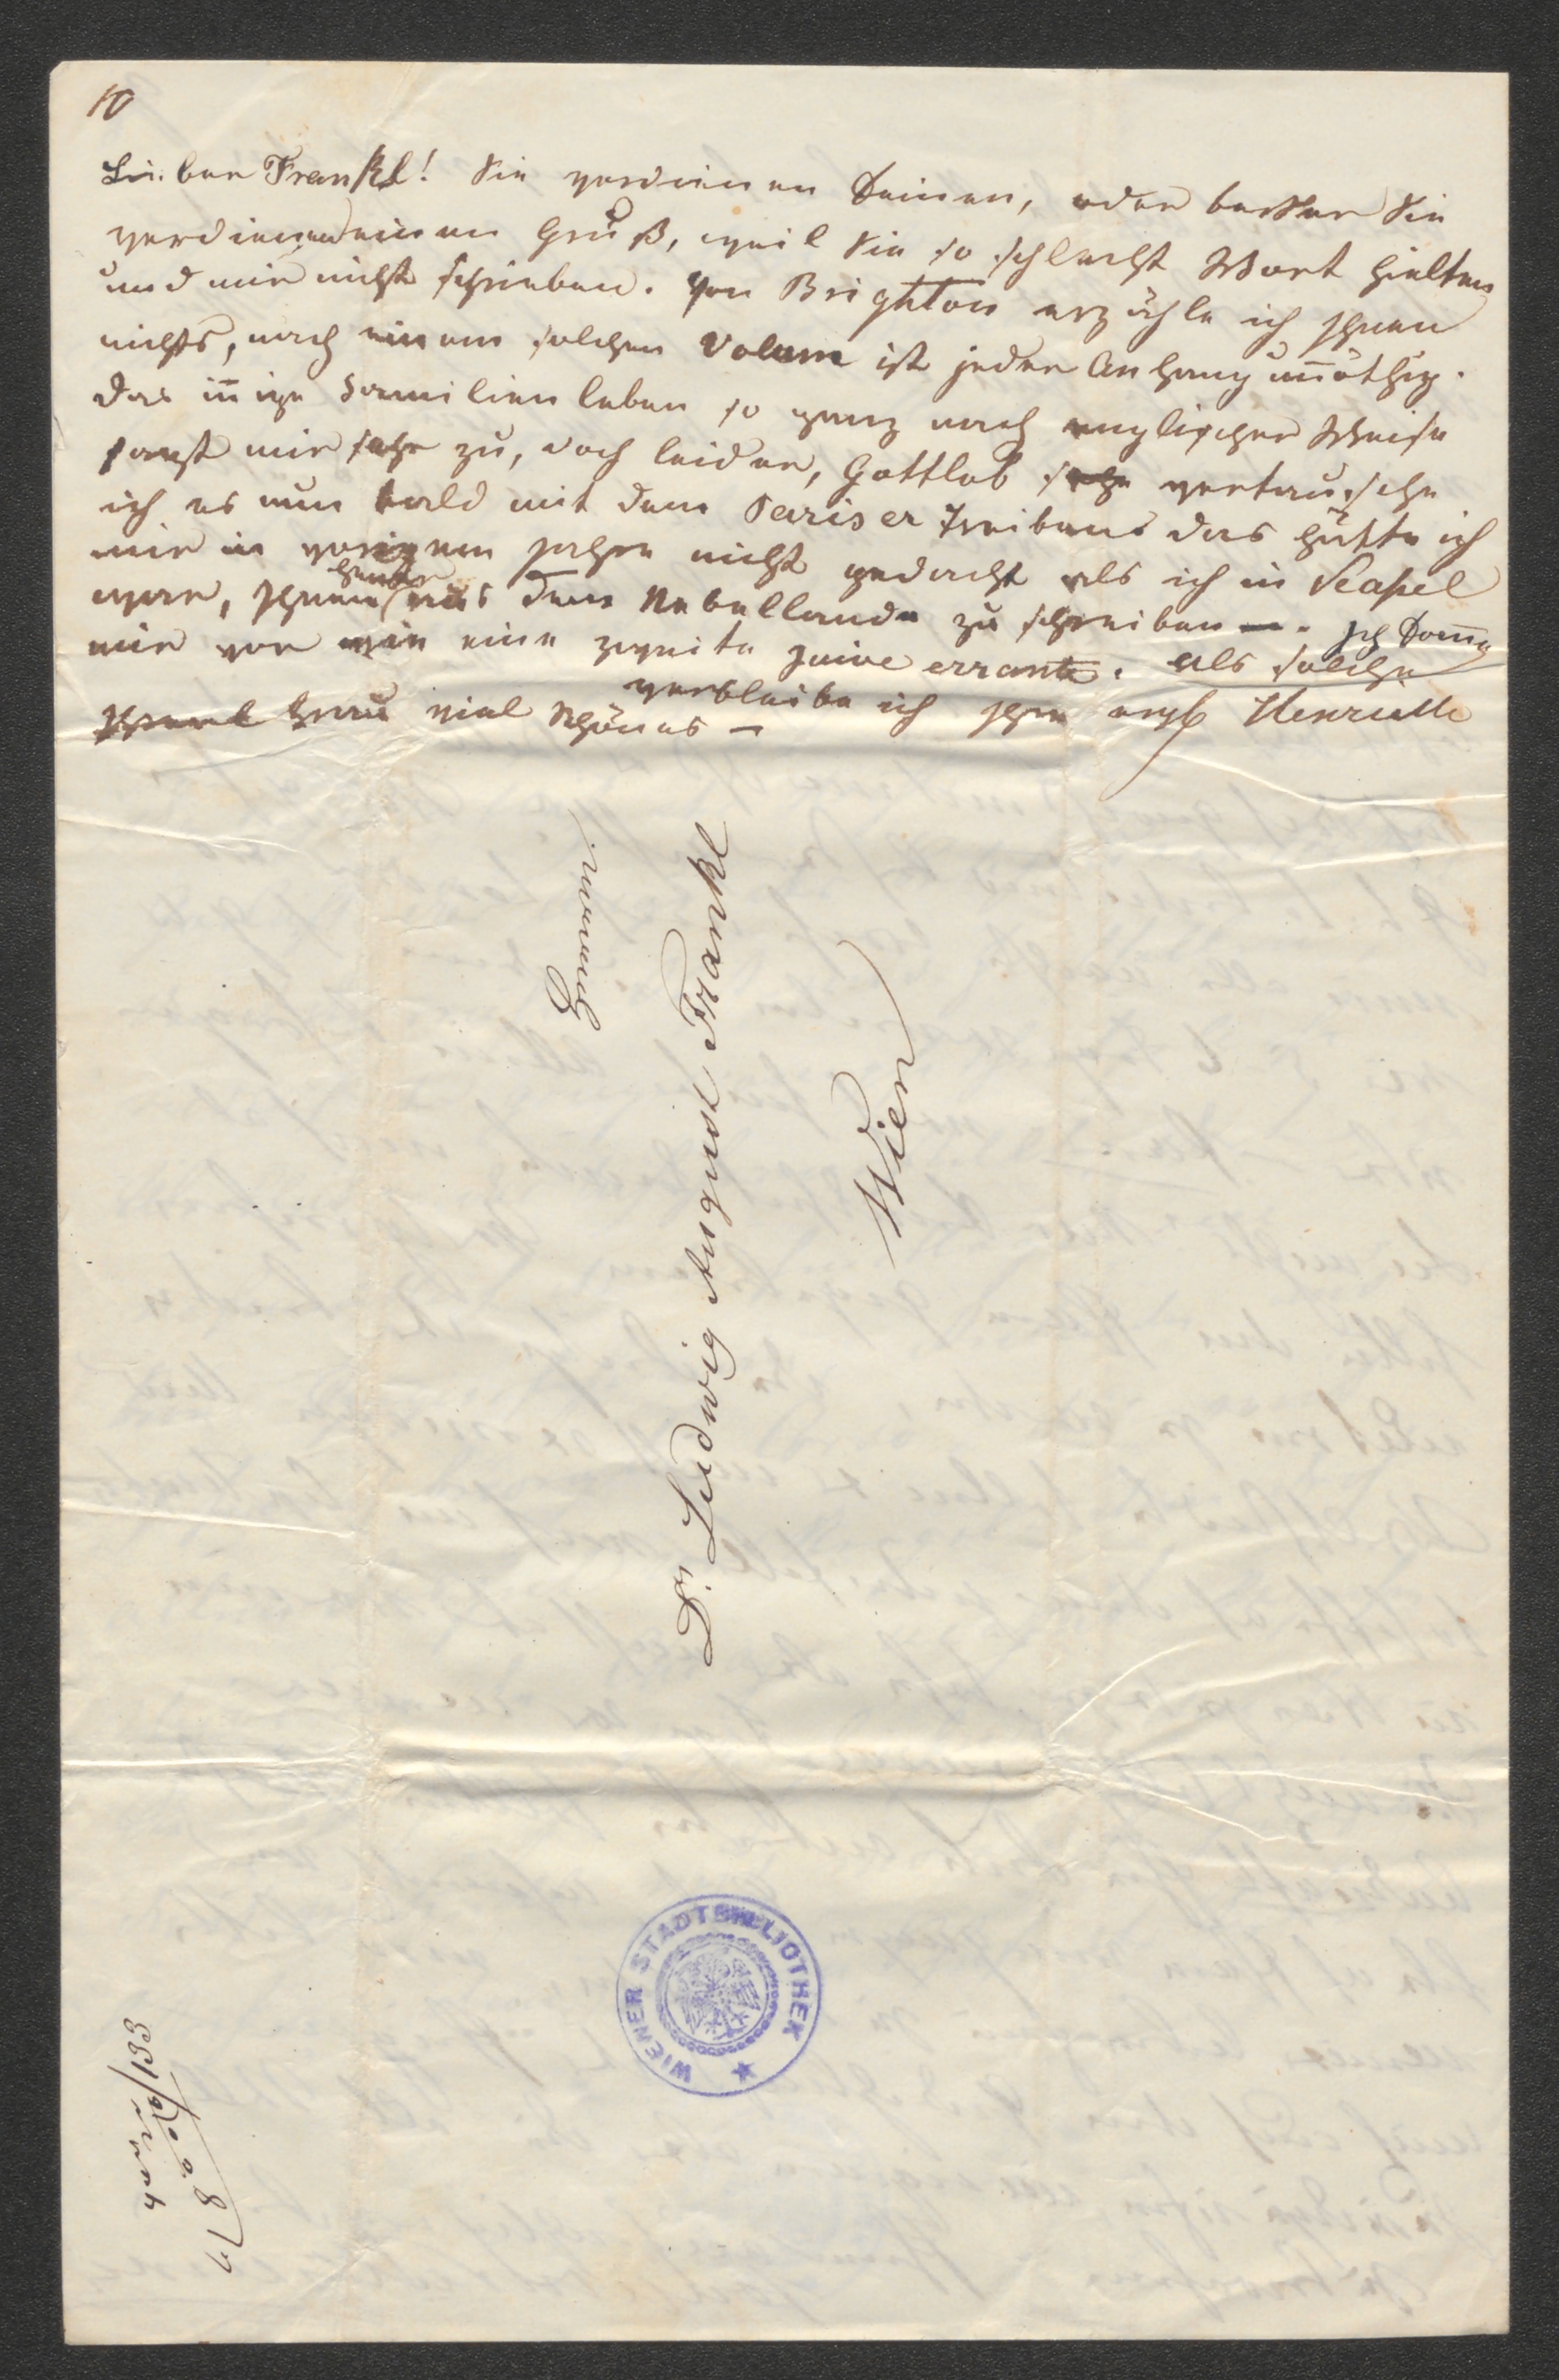 10
Lieber Frankl! Sie verdienen keinen, oder besser Sie
verdienen einen Gruß, weil Sie so schlecht Wort hielten
und mir nicht schrieben. Von Brighton erzähle ich Ihnen
nichts, nach einem solchen Volum ist jeder Anhang uñöthig.
Das iñige Familienleben so ganz nach englischer Weise
sagt mir sehr zu, doch leider, Gottlob vertausche
ich es nun bald mit dem Pariser Treiben das hätte ich
mir in vorigem Jahre nicht gedacht als ich in Neapel
war, Ihnen heuer aus dem Nebellande zu schreiben —. Ich kom̅e
mir vor wie eine zweite juive errante. Als solche
verbleibe ich Ihre ergb Henriette
Frau viel Schönes —
Dr. Ludwig August Frankl
Wien
WIENER STADTBIBLIOTHEK